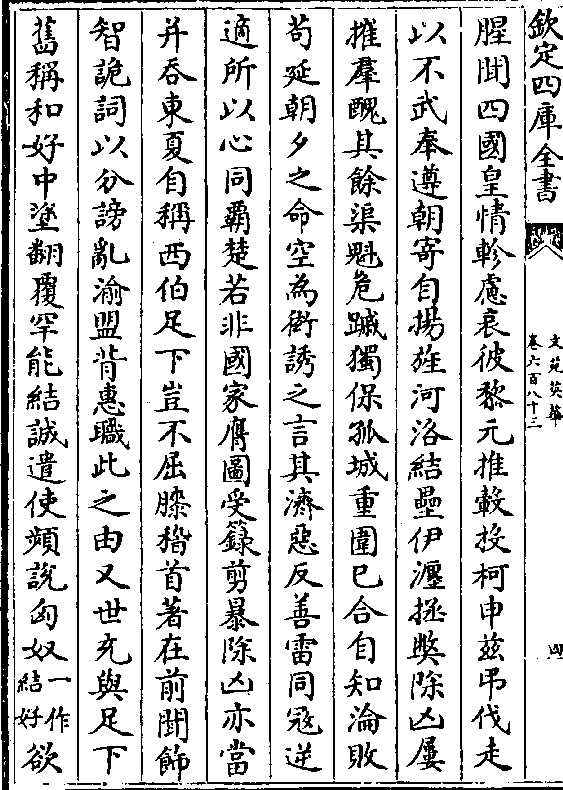 欽定四庫全書
文苑英華
卷六百八十三
四
腥聞四國皇情軫慮哀彼黎元推轂投柯申兹弔伐走
以不武奉遵朝寄自揚旌河洛結壘伊瀍拯弊除凶屢
摧羣醜其餘渠魁危蹴獨保孤城重圍已合自知淪敗
苟延朝夕之命空為衒誘之言其濟惡反善雷同冦逆
適所以心同覇楚若非國家膺圖受籙剪暴除凶亦當
并吞東夏自稱西伯足下豈不屈膝稽首著在前聞飾
智詭詞以分謗亂渝盟背惠職此之由又世充與足下
舊稱和好中塗翻覆罕能結誠遣使頻說匈奴一作結好欲